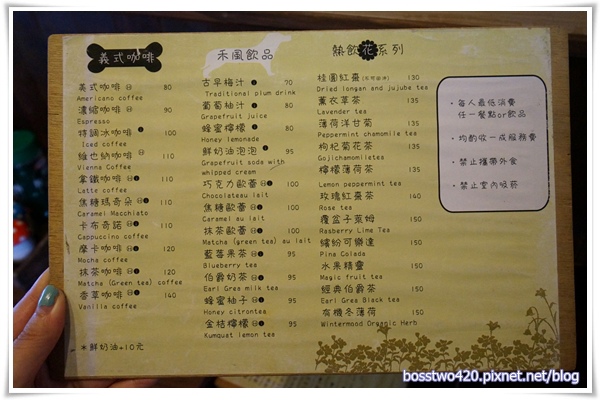 義式咖啡
美式咖啡 80
Americano coffee
濃縮咖啡 90
Espresso
特調冰咖啡 100
Iced coffee
維也納咖啡 110
Vienna Coffee
拿鐵咖啡 110
Latte coffee
焦糖瑪奇朵 120
Caramel Macchiato
卡布奇諾 110
Cappuccino coffee
摩卡咖啡 120
Mocha coffee
抹茶咖啡 120
Matcha (Green tea) coffee
香草咖啡 140
Vanilla coffee
*鮮奶油+10元
禾風飲品
古早梅汁 70
Traditional plum drink
葡萄柚汁 80
Grapefruit juice
蜂蜜檸檬 80
Honey lemonade
鮮奶油泡泡 95
Grapefruit soda with
whipped cream
巧克力歐蕾 100
Chocolateau lait
焦糖歐蕾 100
Caramel au lait
抹茶歐蕾 100
Matcha (green tea) au lait
藍莓果茶 95
Blueberry tea
伯爵奶茶 95
Earl Grea milk tea
蜂蜜柚子 95
Honey citrontea
金桔檸檬 95
Kumquat lemon tea
熱飲花系列
桂圓紅棗 130
Dried longan and jujube tea
薰衣草茶 135
Lavender tea
薄荷洋甘菊 135
Peppermint chamomile tea
枸杞菊花茶 135
Gojichamomiletea
檸檬薄荷茶 135
Lemon peppermint tea
玫瑰紅棗茶 140
Rose tea
覆盆子萊姆 150
Rasberry Lime Tea
繽紛可樂達 150
Pina Colada
水果精靈 150
Magic fruit tea
經典伯爵茶 150
Earl Grea Black tea
有機冬薄荷 150
Wintermood Organic Herb
·每人最低消費
任一餐點or飲品
·均酌收一成服務費
·禁止攜帶外食
·禁止室內吸菸
bosstwo420.pixnet.net/blog